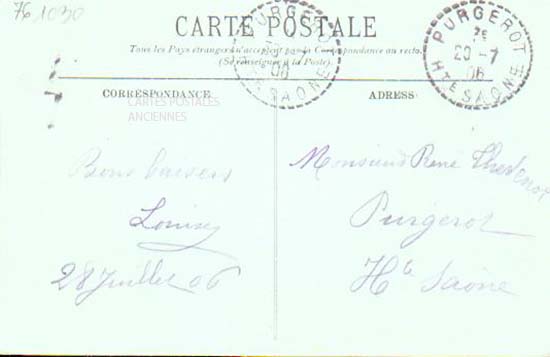 76 1030
CARTE POSTALE
Tous les Pays étrangers n'acceptent pas la Correspondance au recto.
(Se renseigner à la Poste).
PURGEROT
06
Hte SAONE
PURGEROT
20 - 7
06
Hte SAONE
CORRESPONDANCE
CARTES POSTALES
ANCIENNES
Bons baisers
Louise
28 Juillet 06
ADRESSE
Monsieur René Thevenot
Purgerot
Hte Saône